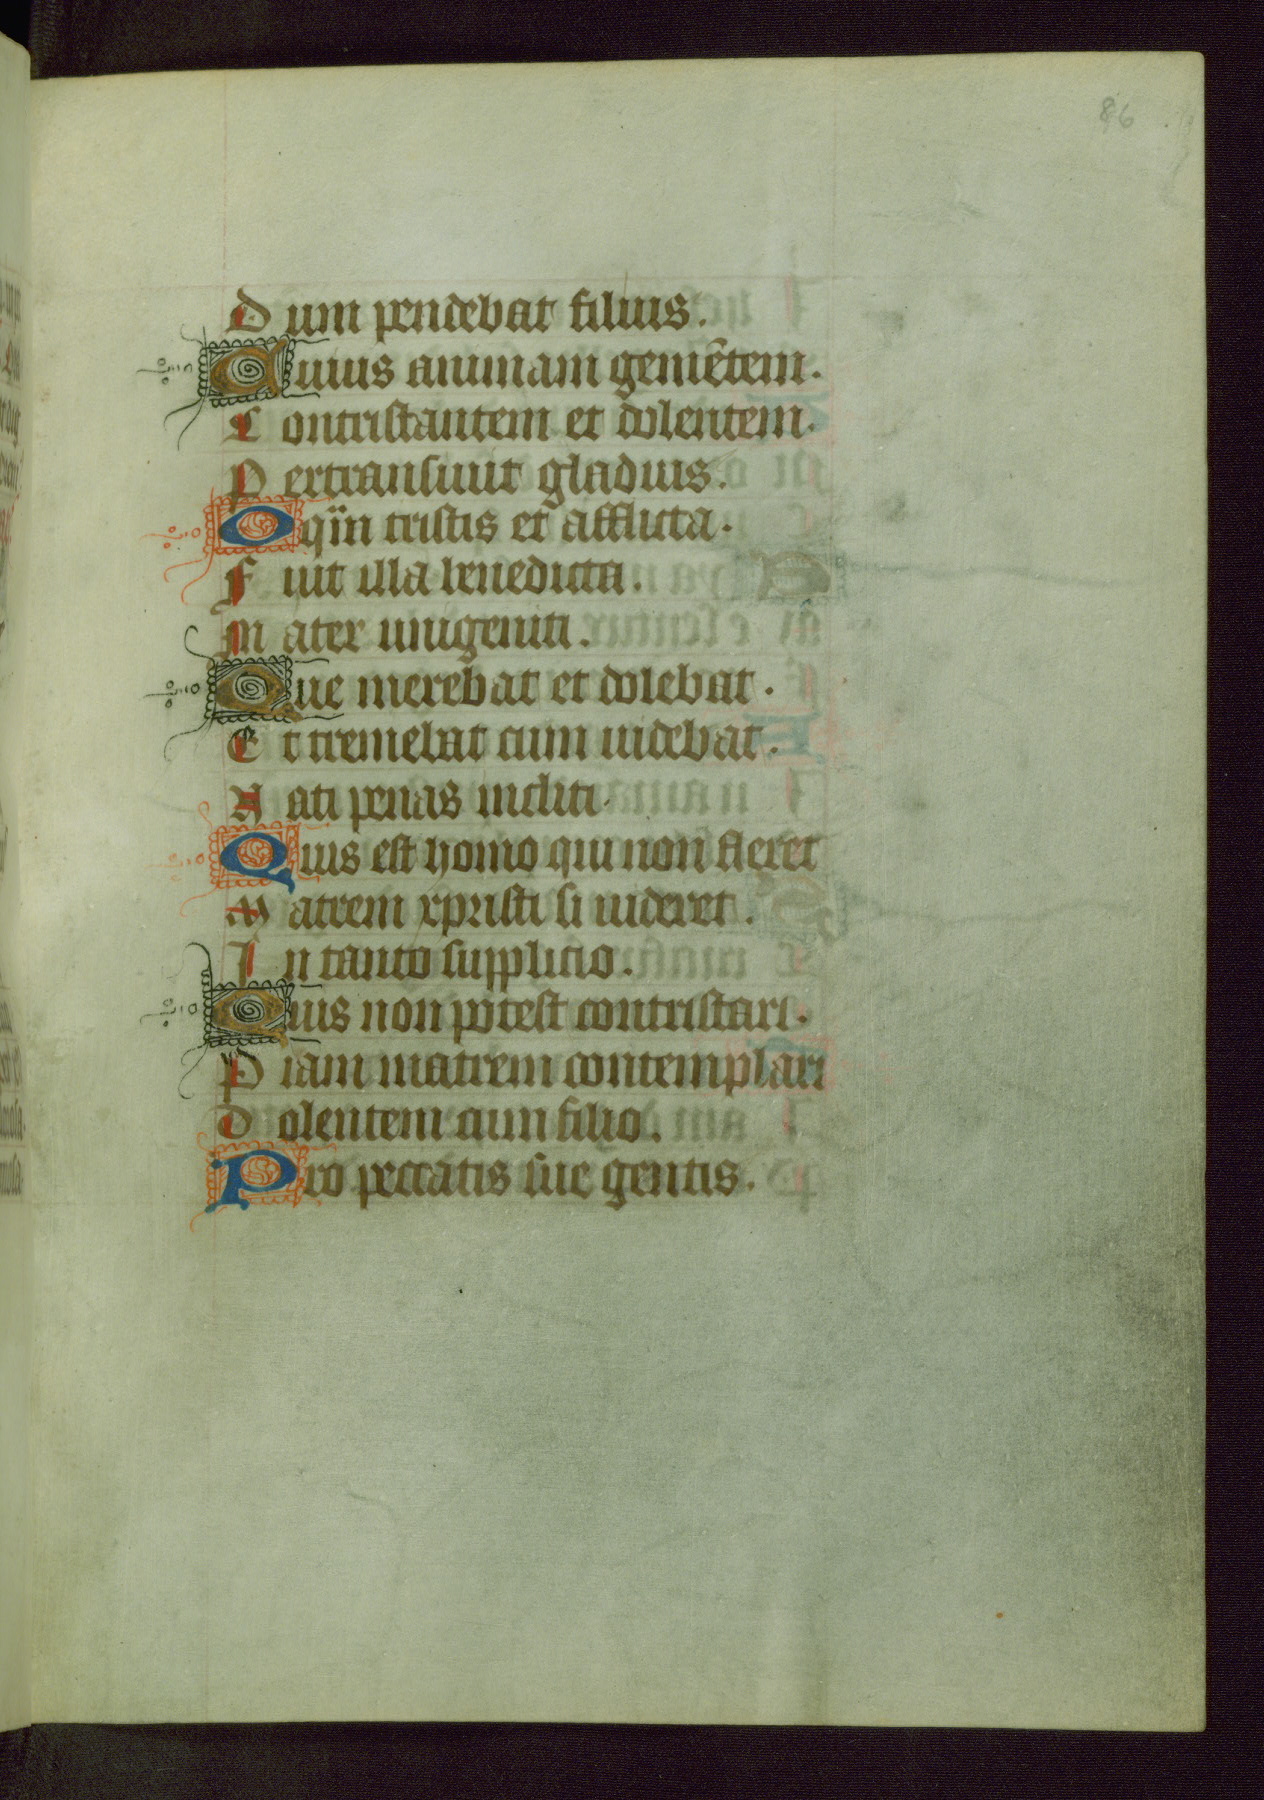 86
Dum pendebat filius.
Cuius animam gemētem.
Contristantem et dolentem.
Pertransiuit gladius.
O qm̄ tristis et afflicta.
Fuit illa benedicta.
Mater unigeniti.
Que merebat et dolebat.
Et tremebat cum uidebat.
Nati penas incliti.
Quis est homo qui non fleret
Matrem xpristi si uideret.
In tanto supplicio.
Quis non potest contristari.
Piam matrem contemplari
Dolentem cum filio.
Pro peccatis sue gentis.